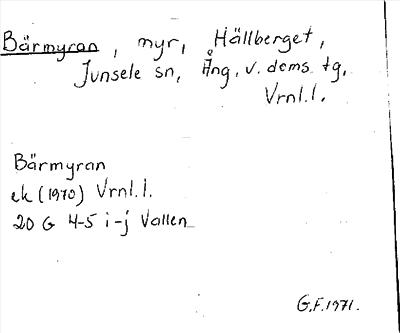 Bärmyran, myr, Hällberget,
Junsele sn, Ång. v. doms. tg,
Vrnl.l.
Bärmyran
ek (1970) Vrnl.l.
20 G 4-5 i-j Vallen
G.F. 1971.